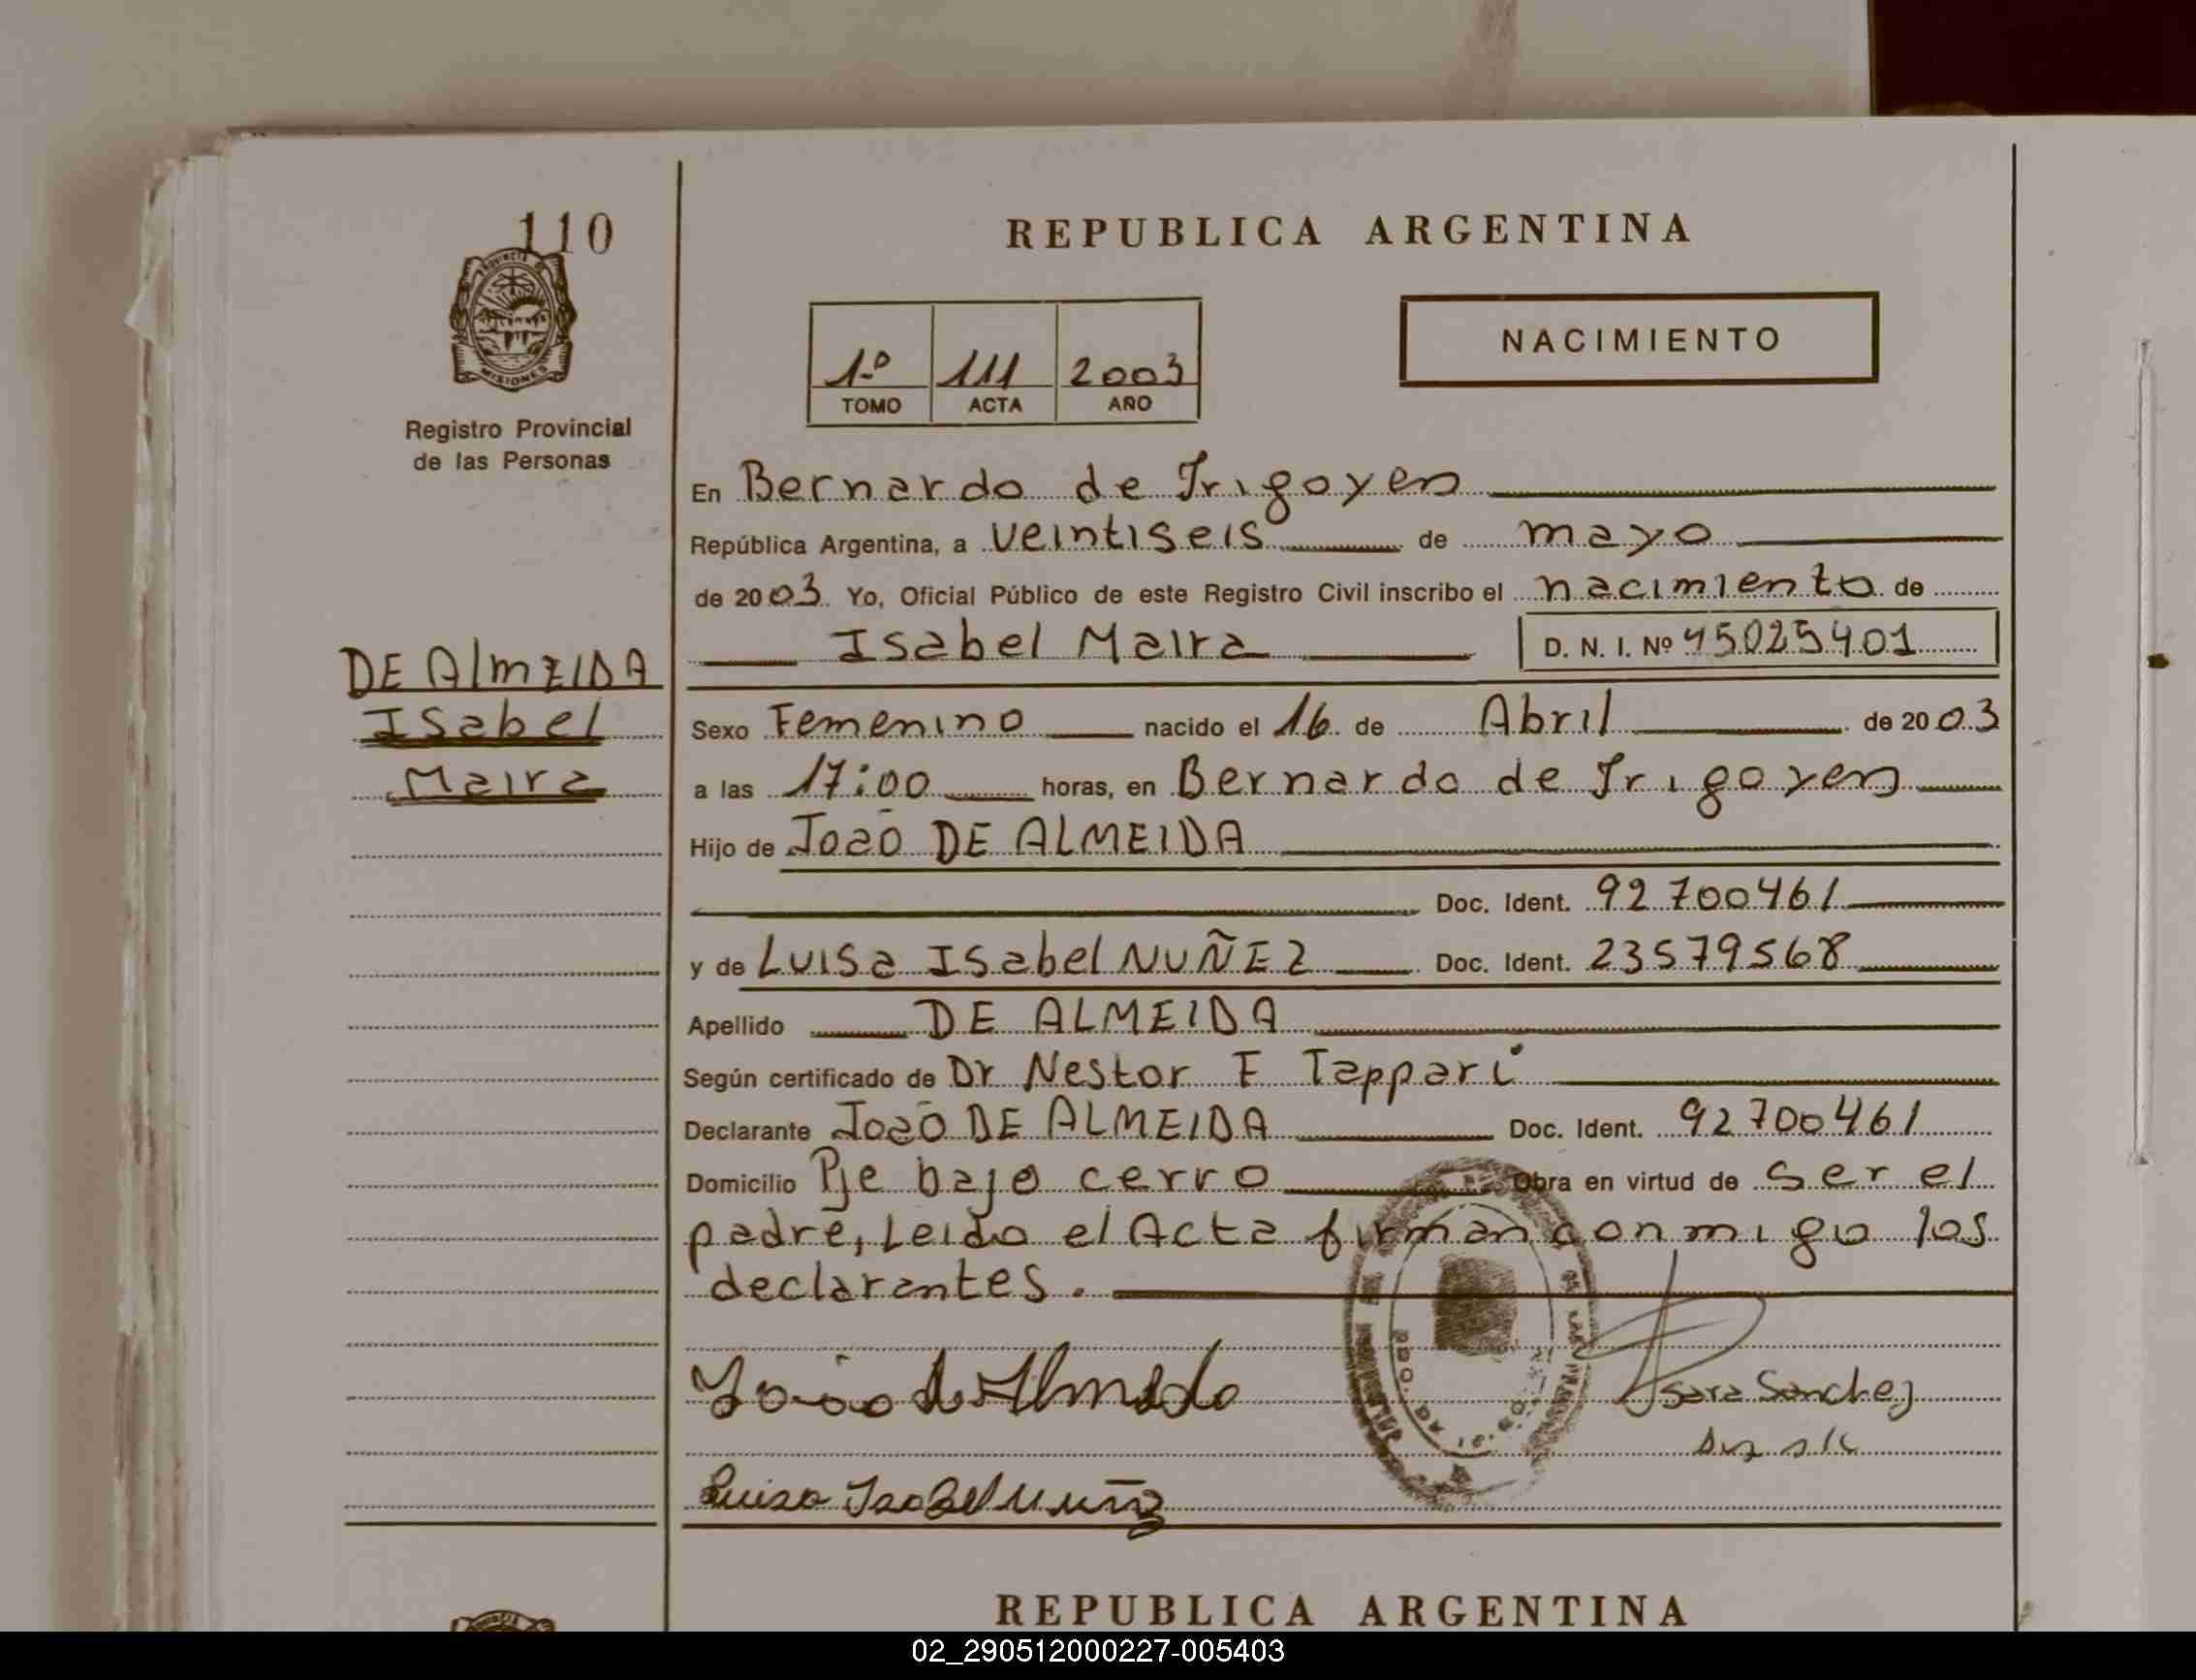 110
REPUBLICA ARGENTINA
PROVINCIA DE
MISIONES
Registro Provincial
de las Personas
1º 111 2003
TOMO ACTA AÑO
NACIMIENTO
En Bernardo de Irigoyen
República Argentina, a veintiseis de mayo
de 2003. Yo, Oficial Público de este Registro Civil inscribo el nacimiento de
Isabel Maira D. N. I. Nº 45025401
DE AlmEIDA
Isabel
Maira
Sexo Femenino nacido el 16 de Abril de 2003
a las 17:00 horas, en Bernardo de Irigoyen
Hijo de Joaõ DE ALMEIDA
Doc. Ident. 92700461
y de Luisa Isabel NUÑEZ Doc. Ident. 23579568
Apellido DE ALMEIDA
Según certificado de Dr Nestor F Tappari
Declarante Joaõ DE ALMEIDA Doc. Ident. 92700461
Domicilio Pje bajo cerro Obra en virtud de ser el
padre, Leido el Acta firman conmigo los
declarantes.
João de Almeida
Sara Sanchez
Luisa Isabel Nuñez
REPUBLICA ARGENTINA
02_290512000227-005403